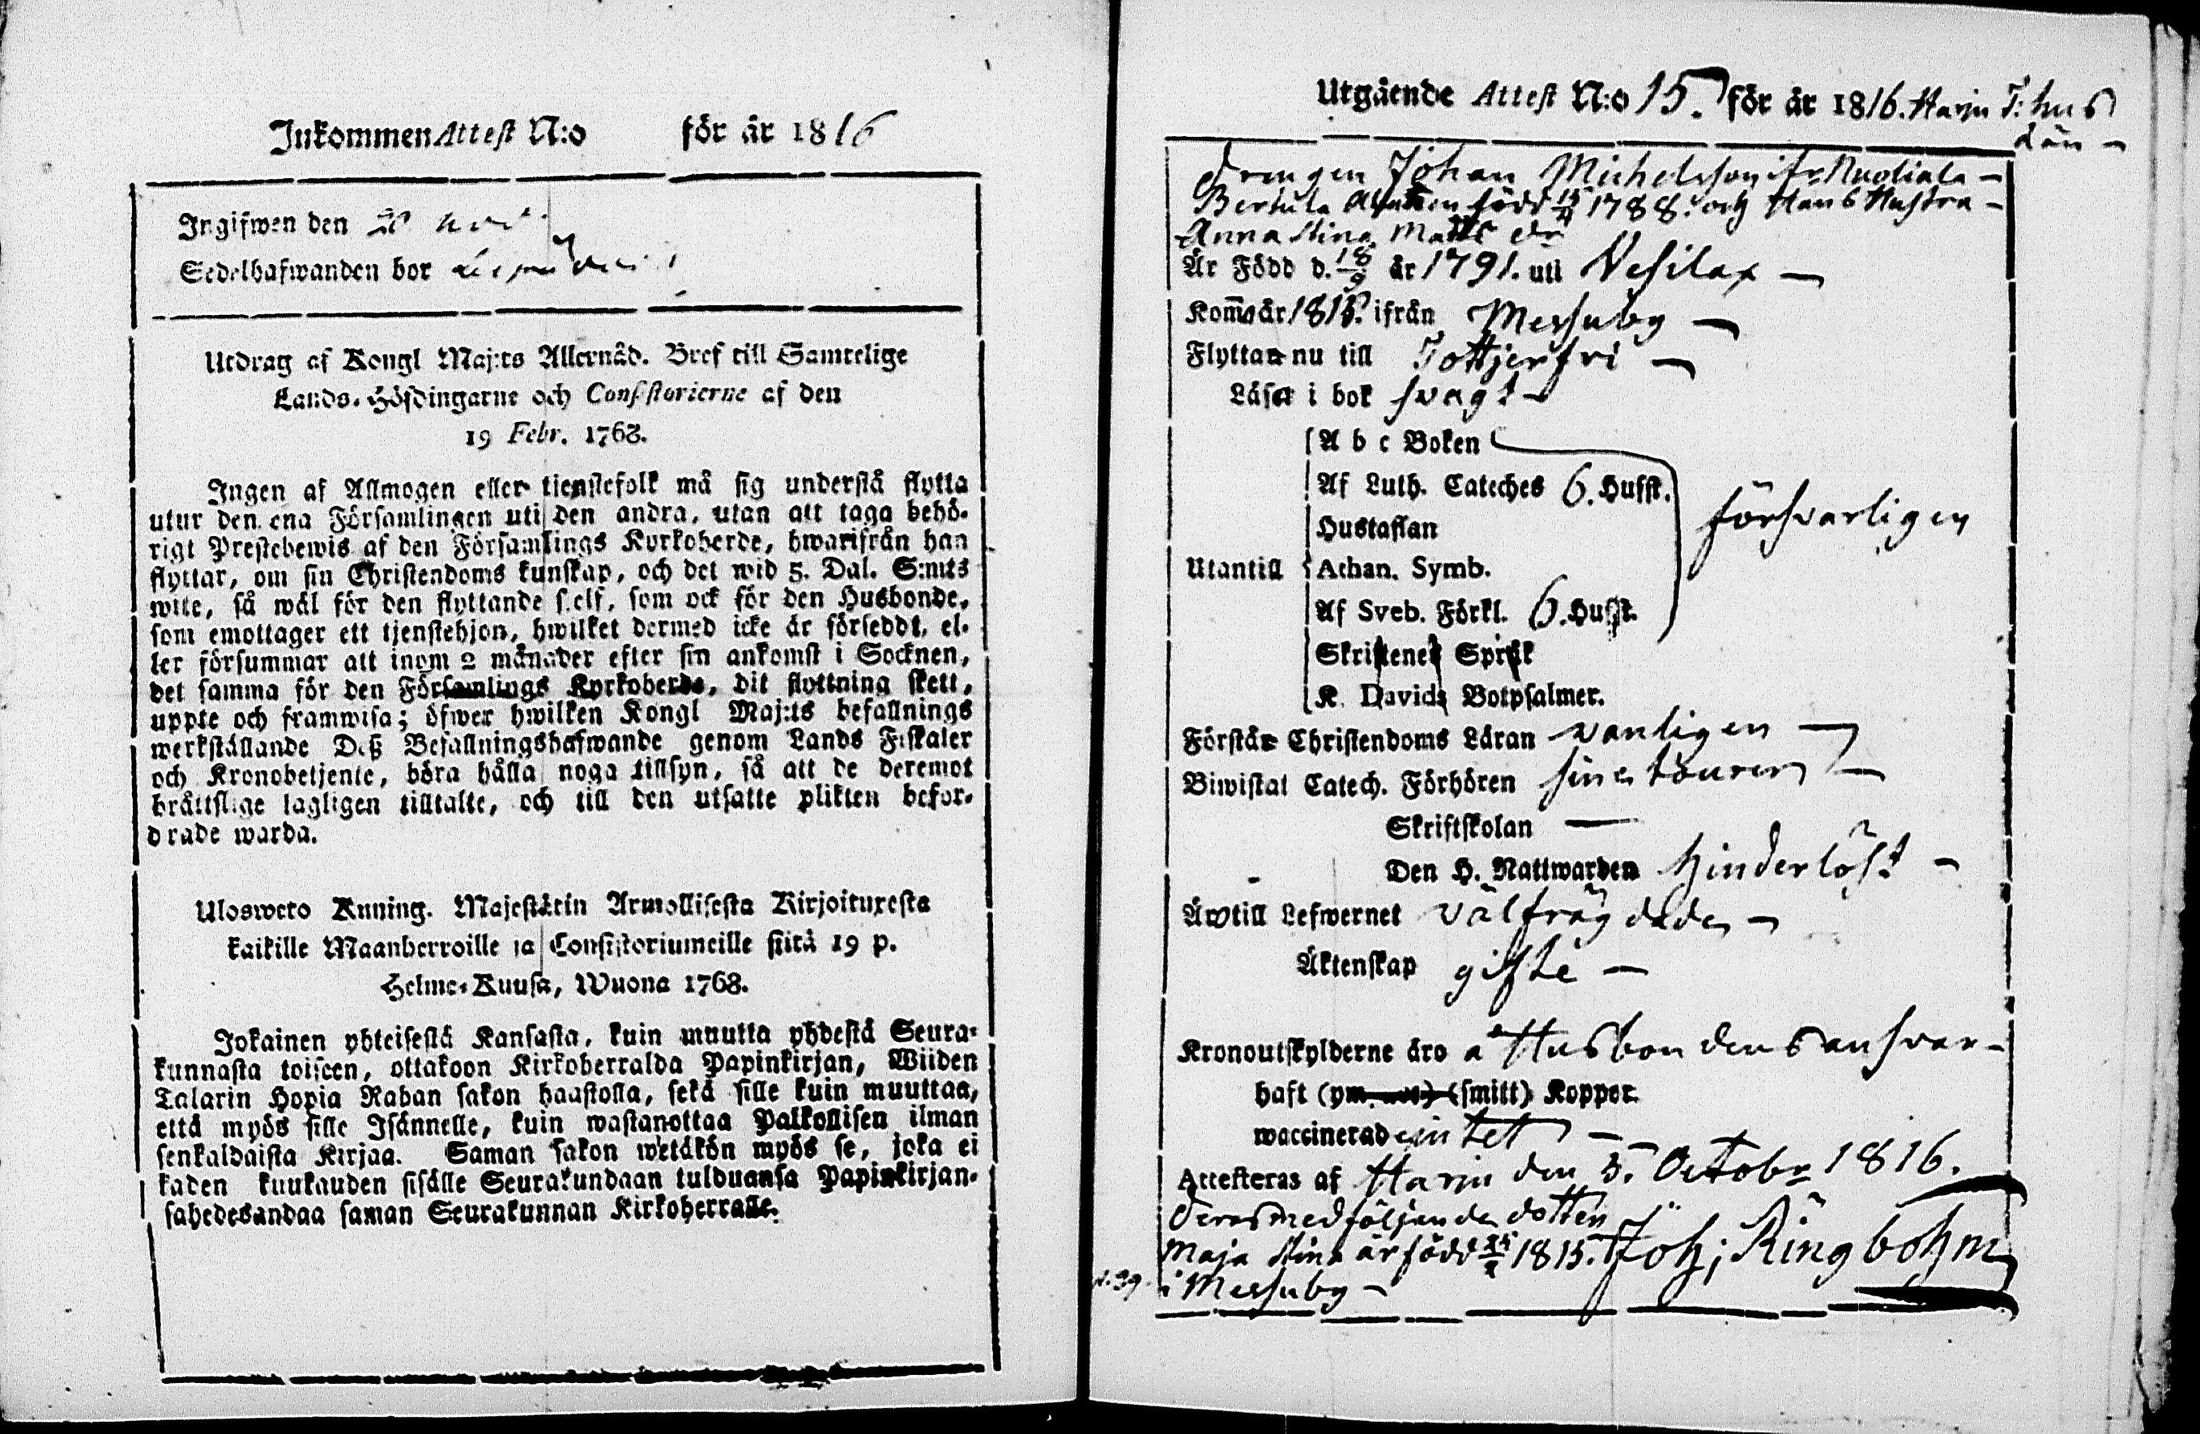 Inkommen Attest N:o för år 1816
Ingifwen den 20 nov.
Sedelhafwanden bor
Utdrag af Kongl Maj:ts Allernåd. Bref till Samtelige
Lands-Höfdingarne och Consistorierne af den
19 Febr. 1768.
Ingen af Allmogen eller tienstefolk må sig understå flytta
utur den ena Församlingen uti den andra, utan att taga behö-
rigt Prestebewis af den Församlings Kyrkoherde, hwarifrån han
flyttar, om sin Christendoms kunskap, och det wid 5. Dal. S:mts
wite, så wäl för den flyttande self, som ock för den Husbonde,
som emottager ett tjenstehjon, hwilket dermed icke är förseddt, el-
ler försummar att inom 2 månader efter sin ankomst i Socknen,
det samma för den Församlings Kyrkoherde, dit flyttning skett,
uppte och framwisa; öfwer hwilken Kongl Maj:ts befallnings
werkställande Deß Befallningshafwande genom Lands Fiskaler
och Kronobetjente, böra hålla noga tillsyn, så att de deremot
bråttslige lagligen tilltalte, och till den utsatte plikten befor-
drade warda.
Ulosweto Kuning. Majestätin Armollisesta Kirjoituxesta
kaikille Maanherroille ja Consistoriumeille siitä 19 p.
Helme-Kuusa, Wuona 1768.
Jokainen yhteisestä Kansasta, kuin muutta yhdestä Seura-
kunnasta toiseen, ottakoon Kirkoherralda Papinkirjan, Wiiden
Talarin Hopia Rahan sakon haastolla, sekä sille kuin muuttaa,
että myös sille Isännelle, kuin wastanottaa Palkollisen ilman
senkaldaista Kirjaa. Saman sakon wetäkön myös se, joka ei
kaden kuukauden sisälle Seurakundaan tulduansa Papinkirjan-
sahedesandaa saman Seurakunnan Kirkoherralle.
Utgående Attest N:o 15. för år 1816. Harju T: hus
dän
Drengen Johan Michelsson ifr. Nuoliala
Bertula född 15/4 1788. och Hans Hustru
Anna Stina Matts dr
Är Född d. 18/9 år 1791. uti Vesilax
Kom år 1815. ifrån Messuby
Flyttar nu till Tottjerfvi
Läser i bok svagt
A b c Boken
Af Luth. Cateches 6. Hufst.
Hustaflan
Utantill Athan. Symb.
Af Sveb. Förkl. 6. Hufst.
försvarligen
Skriftenes Språk
K. Davids Botpsalmer.
Förstår Christendoms Läran vanligen
Biwistat Catech. Förhören sine tourer
Skriftskolan
Den H. Nattwarden hinderlöst
Är till Lefwernet välfrägdade
Äktenskap gifte
Kronoutskylderne äro å Husbondens answar
haft (ym (smitt) Koppor.
waccinerad intet
Attesteras af Harju den 5. Octobr 1816.
deras medföljande dotter
Maja Stina är född 1815. Joh; Ringbohm
i Messuby